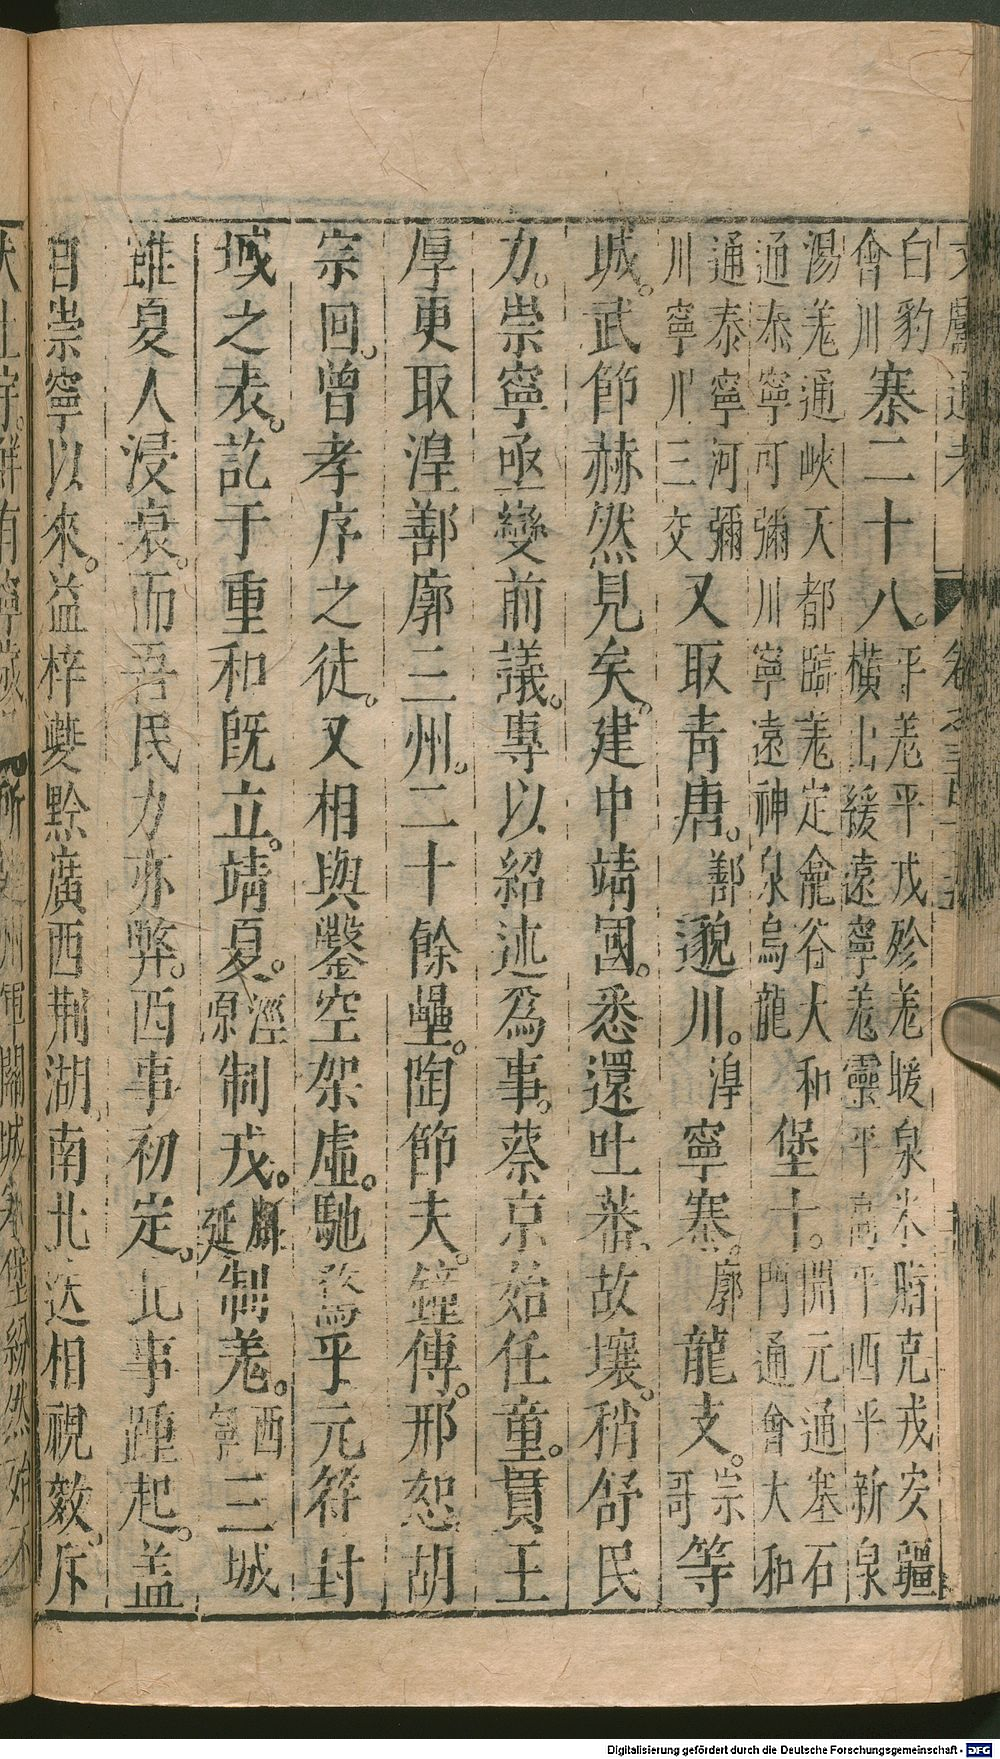 文獻通考
白豹會川寨二十八。平羌平戎殄羌暖泉米脂克戎安疆橫山綏遠寧羌靈平高平西平新泉
湯羌通峽天都臨羌定龕谷大和通泰寧河彌川寧遠神泉烏龍堡十。開元通塞石門通會大和
通泰寧河彌川寧川三交又取青唐。鄯邈川。湟寧寨。廓龍支。宗哥等
城。武節赫然見矣。建中靖國。悉還吐蕃、故壤。稍舒民
力。崇寧亟變前議。專以紹述爲事。蔡京始任童。貫王
厚更取湟鄯廓三州。二十餘壘。陶節夫。鐘傳。邢恕胡
宗回。曾孝序之徒。又相與鑿空架虛。馳騖乎元符封
域之表。訖于重和既立。靖夏。涇原制戎。鄜延制羌。西寧三城
雖夏人浸衰。而吾民力亦弊。西事初定。北事踵起。蓋
自崇寧以來。益梓夔黔廣西荆湖、南北迭相視效。斥
大土宇。靡有寧歲凡所建州軍關城砦堡紛然
Digitalisierung gefördert durch die Deutsche Forschungsgemeinschaft - DFG